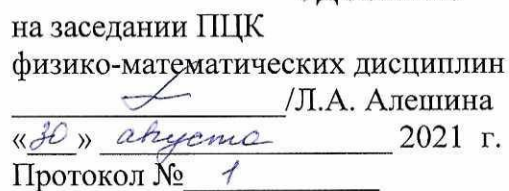 на заседании ПЦК
физико-математических дисциплин
/Л.А. Алешина
«30» августа 2021 г.
Протокол № 1